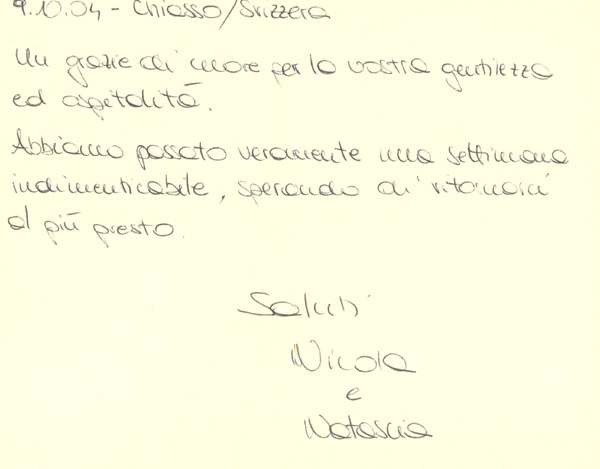 9.10.04 - Chiasso/Svizzera
Un grazie di cuore per la vostra gentilezza
ed ospitalità.
Abbiamo passato veramente una settimana
indimenticabile, sperando di ritornarci
al più presto.
Saluti
Nicola
e
Natascia